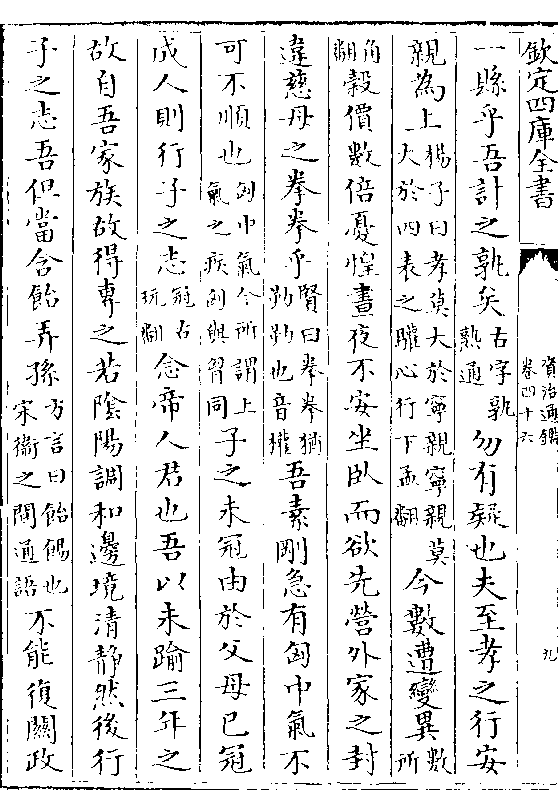 欽定四庫全書
資治通鑑
卷四十六
九
一縣乎吾計之孰矣古字孰熟通勿有疑也夫至孝之行安
親為上揚子曰孝莫大於寧親寧親莫大於四表之驩心行下孟翻今數遭變異數所
角翻穀價數倍憂惶晝夜不安坐臥而欲先營外家之封
違慈母之拳拳乎賢曰拳拳猶勤勤也音權吾素剛急有匈中氣不
可不順也匈中氣今所謂上氣之疾匈與胷同子之未冠由於父母已冠
成人則行子之志冠古玩翻念帝人君也吾以未踰三年之
故自吾家族故得專之若陰陽調和邊境清静然後行
子之志吾但當含飴弄孫方言曰飴餳也宋衞之間通語不能復關政